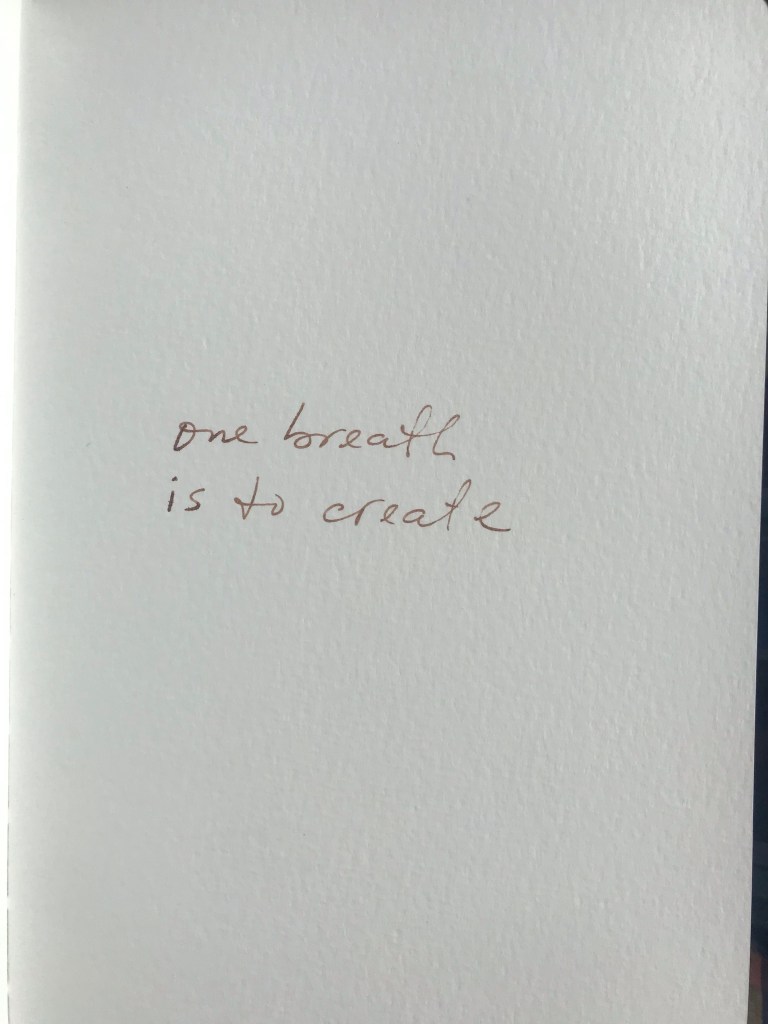 one breath
is to create